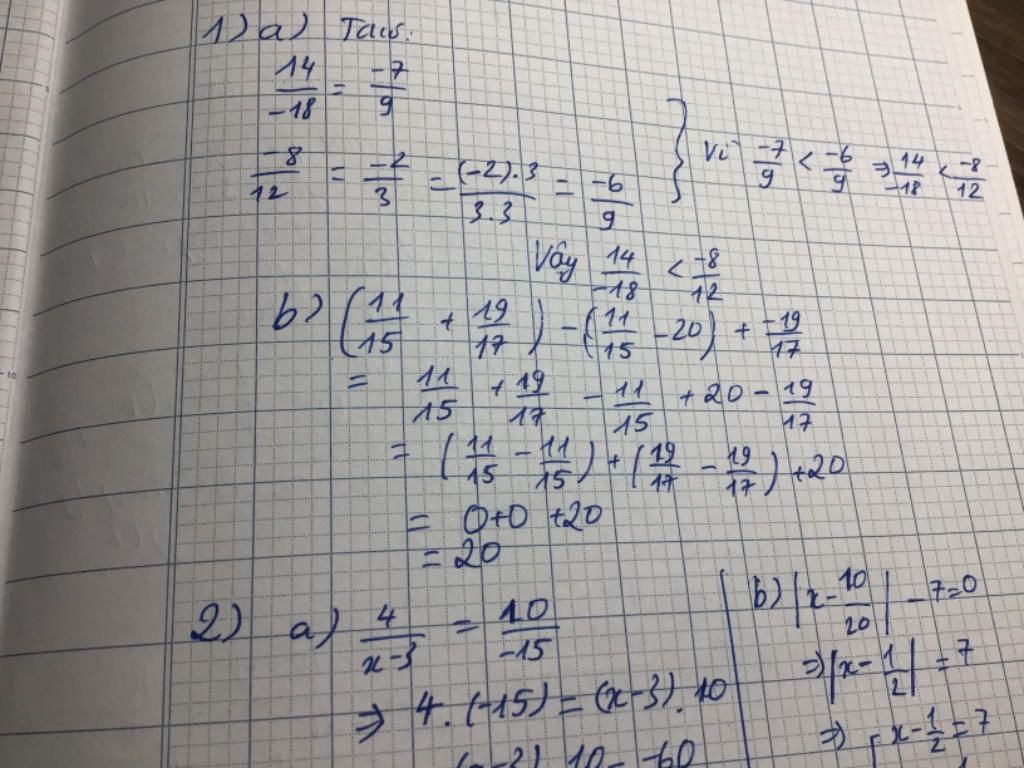 1) a) Ta có:
14/-18 = -7/9
-8/12 = -2/3 = (-2).3/3.3 = -6/9 } Vì -7/9 < -6/9 ⇒ 14/-18 < -8/12
Vậy 14/-18 < -8/12
b) (11/15 + 19/17) - (11/15 - 20) + -19/17
= 11/15 + 19/17 - 11/15 + 20 - 19/17
= (11/15 - 11/15) + (19/17 - 19/17) + 20
= 0+0 +20
= 20
2) a) 4/x-3 = 10/-15
⇒ 4.(-15) = (x-3).10
10 = -60
b) |x - 10/20| - 7=0
⇒ |x - 1/2| = 7
⇒ x - 1/2 = 7